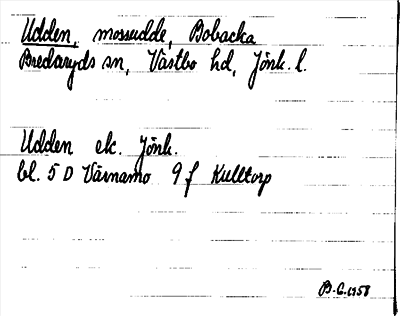 Udden, mossudde, Bobacka
Bredaryds sn, Västbo hd, Jönk. l.
Udden ek. Jönk.
bl. 5 D Värnamo 9 f Kulltorp
B.G. 1958